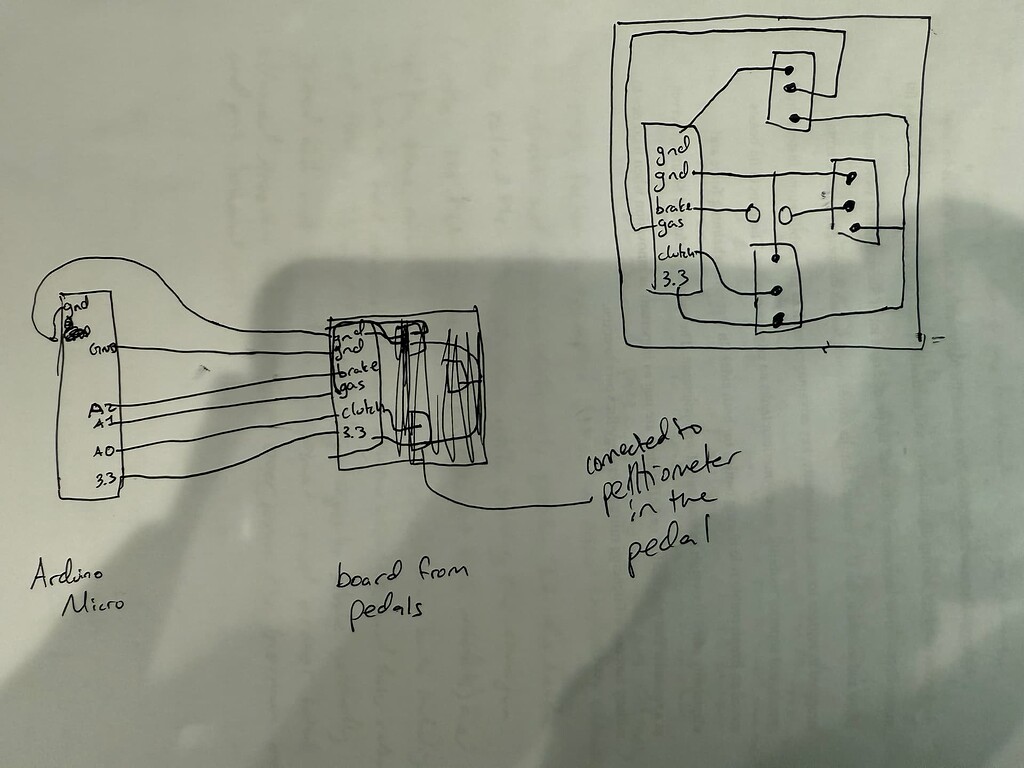 gnd
gnd
brake
gas
clutch
3.3
gnd
GND
A2
A1
A0
3.3
gnd
gnd
brake
gas
clutch
3.3
connected to
petitiometer
in the
pedal
Arduino
Micro
board from
pedals